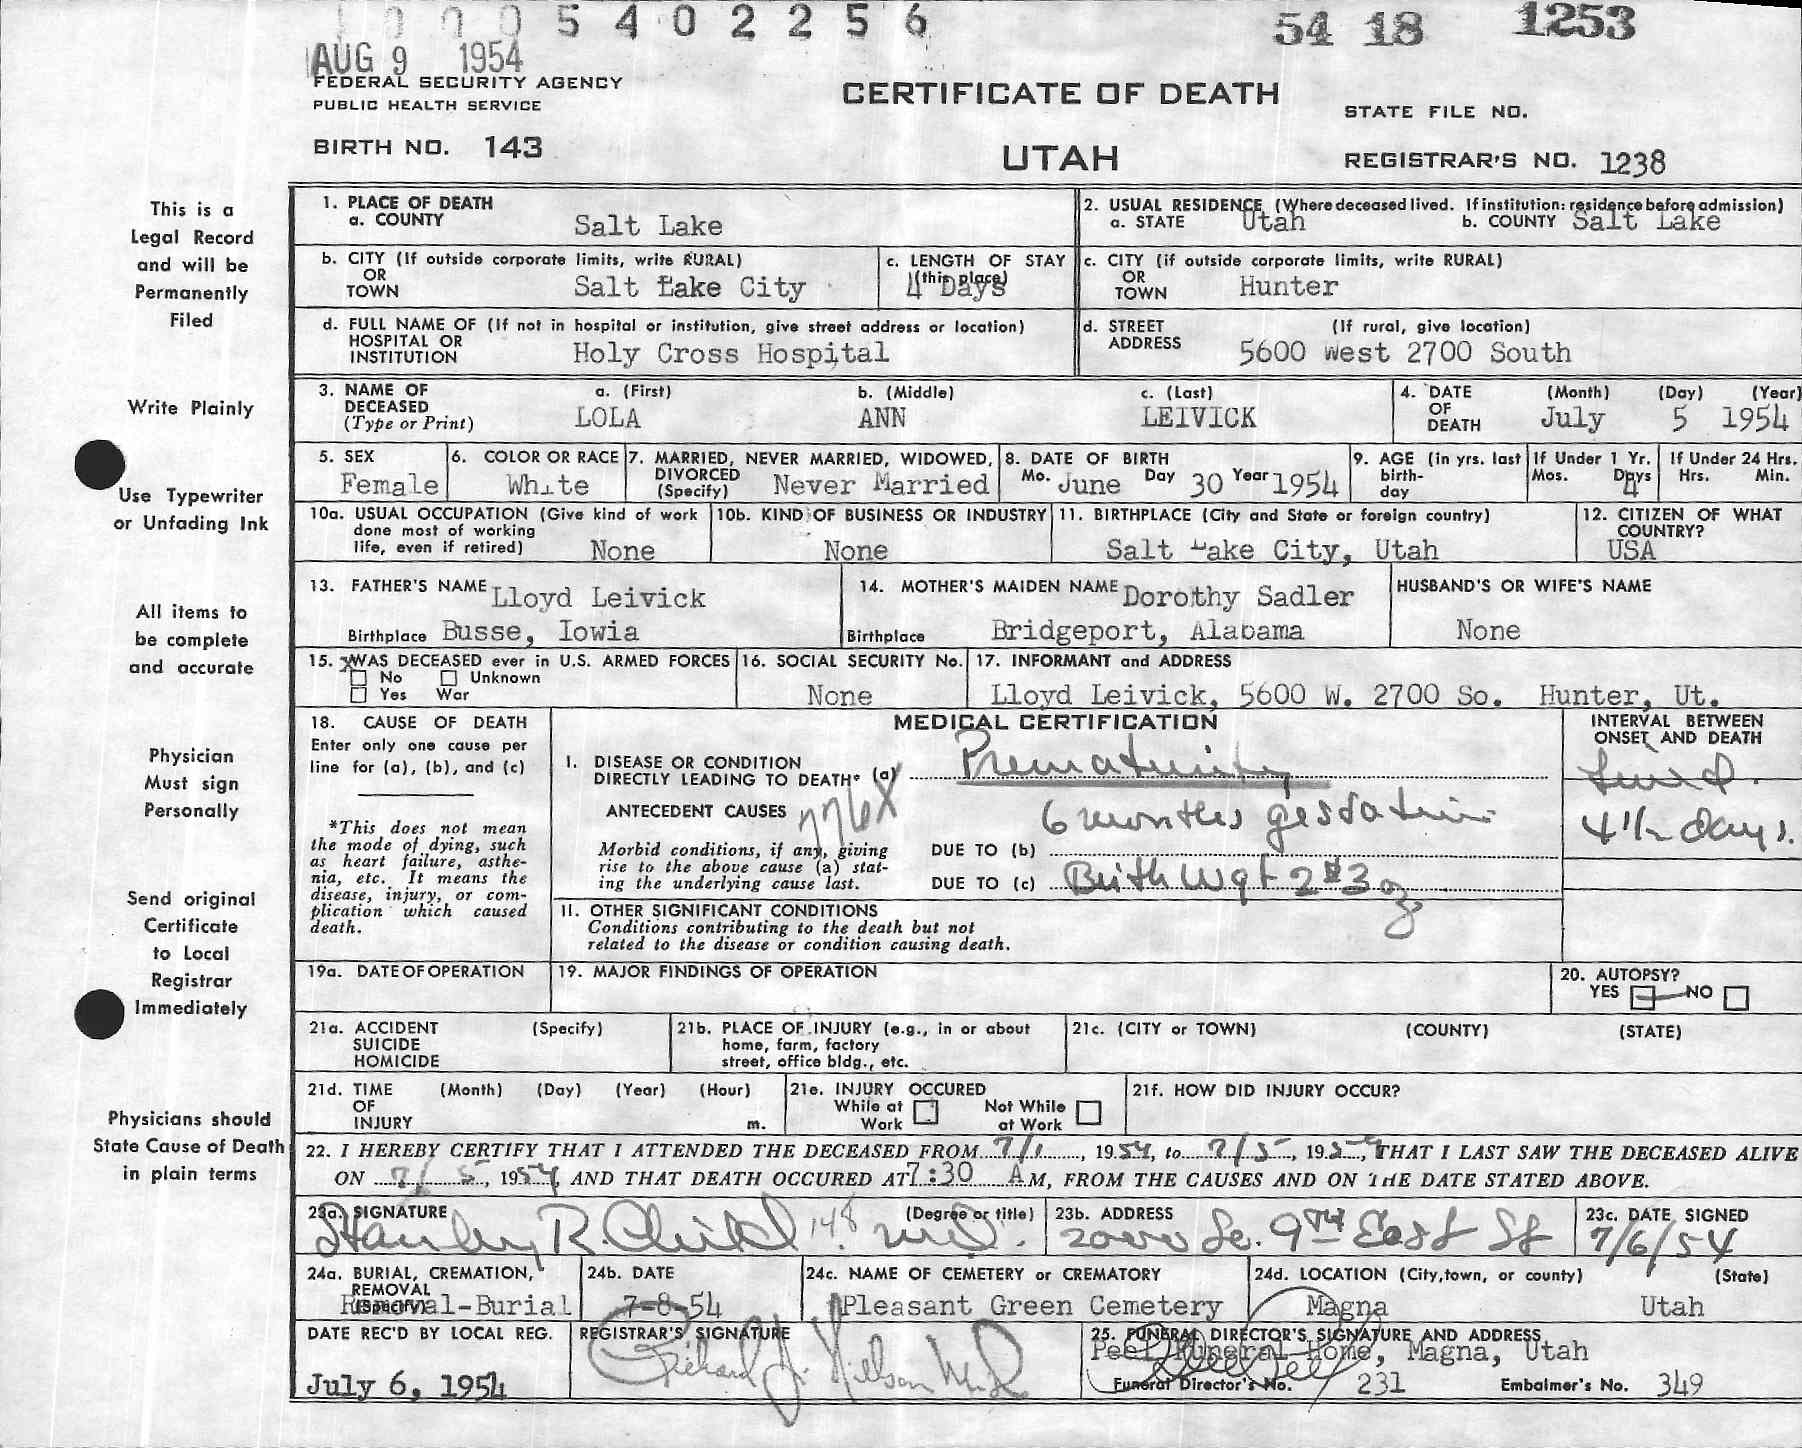 5 4 0 2 2 5 6 54 18 1253
AUG 9 1954
FEDERAL SECURITY AGENCY
PUBLIC HEALTH SERVICE
CERTIFICATE OF DEATH
STATE FILE NO.
BIRTH NO. 143
UTAH
REGISTRAR'S NO. 1238
This is a
Legal Record
and will be
Permanently
Filed
Write Plainly
Use Typewriter
or Unfading Ink
All items to
be complete
and accurate
Physician
Must sign
Personally
Send original
Certificate
to Local
Registrar
Immediately
Physicians should
State Cause of Death
in plain terms
1. PLACE OF DEATH
a. COUNTY Salt Lake
2. USUAL RESIDENCE (Where deceased lived. If institution: residence before admission)
a. STATE Utah b. COUNTY Salt Lake
b. CITY (If outside corporate limits, write RURAL)
OR
TOWN Salt Lake City
c. LENGTH OF STAY
(this place)
4 Days
c. CITY (if outside corporate limits, write RURAL)
OR
TOWN Hunter
d. FULL NAME OF (If not in hospital or institution, give street address or location)
HOSPITAL OR
INSTITUTION Holy Cross Hospital
d. STREET (If rural, give location)
ADDRESS
5600 West 2700 South
3. NAME OF a. (First) b. (Middle) c. (Last)
DECEASED
(Type or Print) LOLA ANN LEIVICK
4. DATE (Month) (Day) (Year)
OF
DEATH July 5 1954
5. SEX
Female
6. COLOR OR RACE
White
7. MARRIED, NEVER MARRIED, WIDOWED,
DIVORCED
(Specify) Never Married
8. DATE OF BIRTH
Mo. June Day 30 Year 1954
9. AGE (in yrs. last
birth-
day
If Under 1 Yr.
Mos. Days
4
If Under 24 Hrs.
Hrs. Min.
10a. USUAL OCCUPATION (Give kind of work
done most of working
life, even if retired) None
10b. KIND OF BUSINESS OR INDUSTRY
None
11. BIRTHPLACE (City and State or foreign country)
Salt Lake City, Utah
12. CITIZEN OF WHAT
COUNTRY?
USA
13. FATHER'S NAME Lloyd Leivick
Birthplace Busse, Iowia
14. MOTHER'S MAIDEN NAME Dorothy Sadler
Birthplace Bridgeport, Alabama
HUSBAND'S OR WIFE'S NAME
None
15. WAS DECEASED ever in U.S. ARMED FORCES
No Unknown
Yes War
16. SOCIAL SECURITY No.
None
17. INFORMANT and ADDRESS
Lloyd Leivick, 5600 W. 2700 So. Hunter, Ut.
18. CAUSE OF DEATH
Enter only one cause per
line for (a), (b), and (c)
*This does not mean
the mode of dying, such
as heart failure, asthe-
nia, etc. It means the
disease, injury, or com-
plication which caused
death.
MEDICAL CERTIFICATION
INTERVAL BETWEEN
ONSET AND DEATH
I. DISEASE OR CONDITION
DIRECTLY LEADING TO DEATH* (a) Prematurity
Lived
4 1/2 days.
ANTECEDENT CAUSES 776X
Morbid conditions, if any, giving
rise to the above cause (a) stat-
ing the underlying cause last.
6 months gestation
DUE TO (b)
DUE TO (c) Birth Wgt 2# 3 oz
II. OTHER SIGNIFICANT CONDITIONS
Conditions contributing to the death but not
related to the disease or condition causing death.
19a. DATE OF OPERATION
19. MAJOR FINDINGS OF OPERATION
20. AUTOPSY?
YES NO
21a. ACCIDENT (Specify)
SUICIDE
HOMICIDE
21b. PLACE OF INJURY (e.g., in or about
home, farm, factory
street, office bldg., etc.
21c. (CITY or TOWN) (COUNTY) (STATE)
21d. TIME (Month) (Day) (Year) (Hour)
OF
INJURY m.
21e. INJURY OCCURED
While at Not While
Work at Work
21f. HOW DID INJURY OCCUR?
22. I HEREBY CERTIFY THAT I ATTENDED THE DECEASED FROM 7/1, 1954, to 7/5, 1954, THAT I LAST SAW THE DECEASED ALIVE
ON 7/5, 1954, AND THAT DEATH OCCURED AT 7:30 A.M, FROM THE CAUSES AND ON THE DATE STATED ABOVE.
23a. SIGNATURE (Degree or title)
Stanley R. Child 148 M.D.
23b. ADDRESS
2000 So. 9th East St
23c. DATE SIGNED
7/6/54
24a. BURIAL, CREMATION,
REMOVAL
(Specify)
Removal-Burial
24b. DATE
7-8-54
24c. NAME OF CEMETERY or CREMATORY
Pleasant Green Cemetery
24d. LOCATION (City, town, or county) (State)
Magna Utah
DATE REC'D BY LOCAL REG.
July 6, 1954
REGISTRAR'S SIGNATURE
Richard J. Nielson M.D.
25. FUNERAL DIRECTOR'S SIGNATURE AND ADDRESS
Peel Funeral Home, Magna, Utah
Funeral Director's No. 231 Embalmer's No. 349